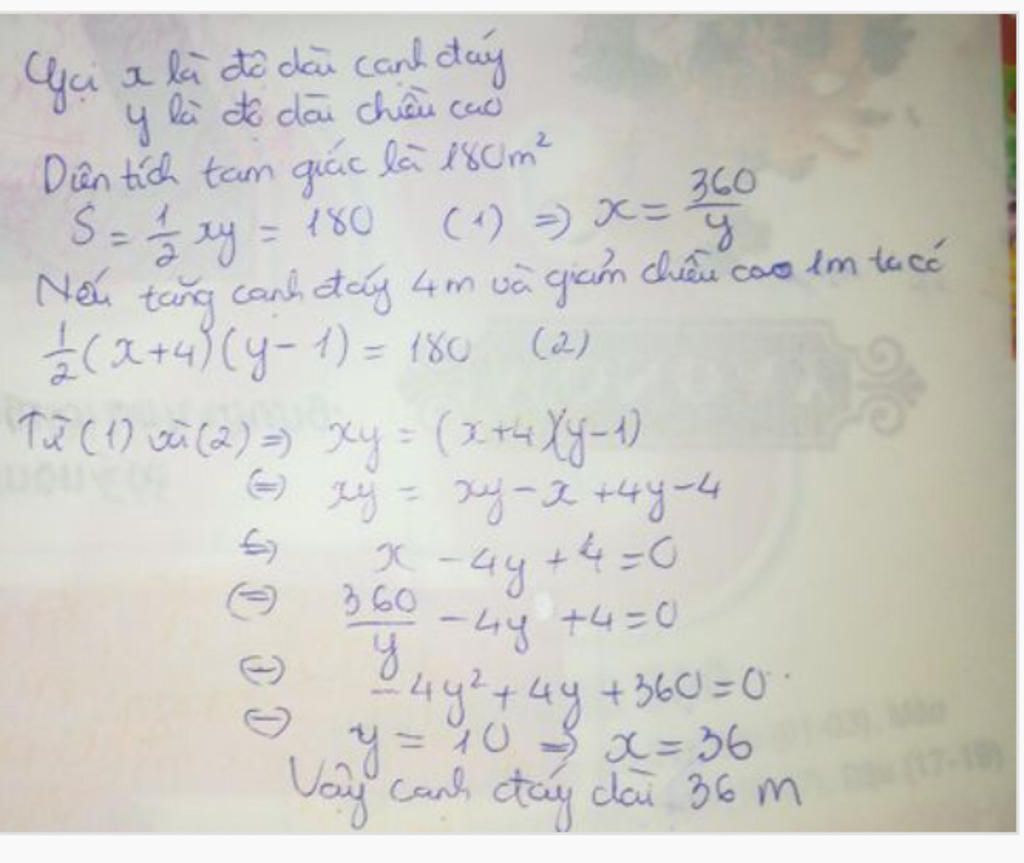 Gọi x là độ dài cạnh đáy
y là độ dài chiều cao
Diện tích tam giác là 180m²
S = 1/2 xy = 180 (1) => x = 360/y
Nếu tăng cạnh đáy 4m và giảm chiều cao 1m ta có
1/2 (x+4)(y-1) = 180 (2)
Từ (1) và (2) => xy = (x+4)(y-1)
<=> xy = xy - x + 4y - 4
<=> x - 4y + 4 = 0
<=> 360/y - 4y + 4 = 0
<=> -4y² + 4y + 360 = 0
<=> y = 10 => x = 36
Vậy cạnh đáy dài 36 m